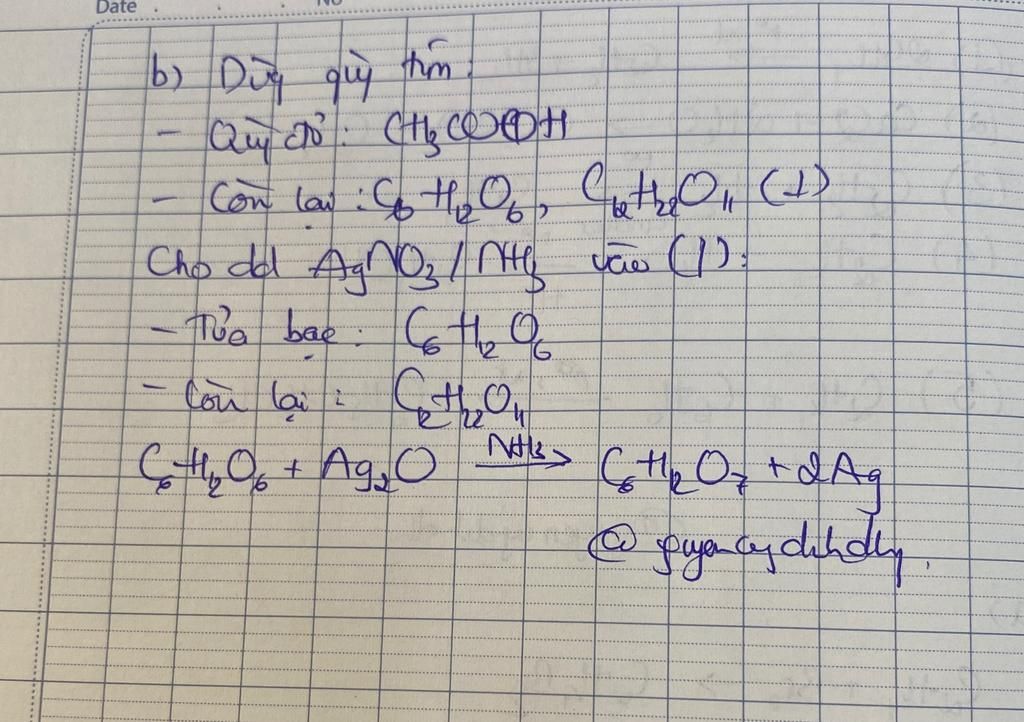 Date . . . No
b) Dùng quỳ tím:
- Quỳ đỏ: CH₃COOH
- Còn lại: C₆H₁₂O₆, C₁₂H₂₂O₁₁ (1)
Cho dd AgNO₃/NH₃ vào (1):
- Tủa bạc: C₆H₁₂O₆
- Còn lại: C₁₂H₂₂O₁₁
C₆H₁₂O₆ + Ag₂O –NH₃→ C₆H₁₂O₇ + 2Ag
@